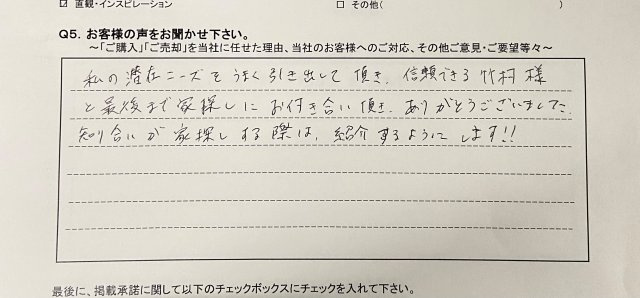 ☑ 直観・インスピレーション □ その他( )
Q5. お客様の声をお聞かせ下さい。
～「ご購入」「ご売却」を当社に任せた理由、当社のお客様へのご対応、その他ご意見・ご要望等々～
私の潜在ニーズをうまく引き出して頂き、信頼できる竹村様
と最後まで家探しにお付き合い頂き、ありがとうございました。
知り合いが家探しする際は、紹介するようにします!!
最後に、掲載承諾に関して以下のチェックボックスにチェックを入れて下さい。